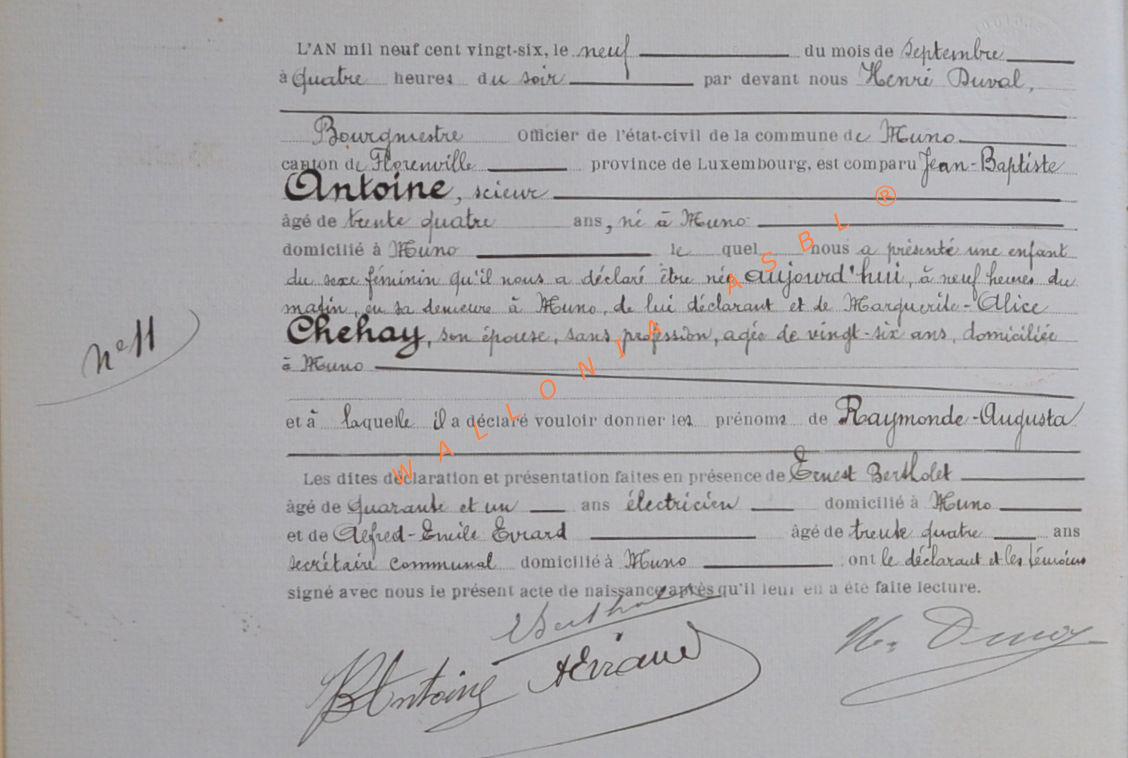 L'AN mil neuf cent vingt-six, le neuf du mois de Septembre
à quatre heures du soir par devant nous Henri Duval,
Bourgmestre Officier de l'état-civil de la commune de Muno
canton de Florenville province de Luxembourg, est comparu Jean-Baptiste
Antoine, scieur
âgé de trente quatre ans, né à Muno
domicilié à Muno le quel nous a présenté une enfant
du sexe féminin qu'il nous a déclaré être née aujourd'hui, à neuf heures du
matin, en sa demeure à Muno, de lui déclarant et de Marguerite-Alice
Chehay, son épouse, sans profession, agée de vingt-six ans, domiciliée
à Muno
N° 11
et à laquelle il a déclaré vouloir donner les prénoms de Raymonde-Augusta
Les dites déclaration et présentation faites en présence de Ernest Bertholet
âgé de quarante et un ans électricien domicilié à Muno
et de Alfred-Emile Evrard âgé de trente quatre ans
secrétaire communal domicilié à Muno ont le déclarant et les témoins
signé avec nous le présent acte de naissance après qu'il leur en a été faite lecture.
JBAntoine AEvrard
WALLONIA ASBL ®